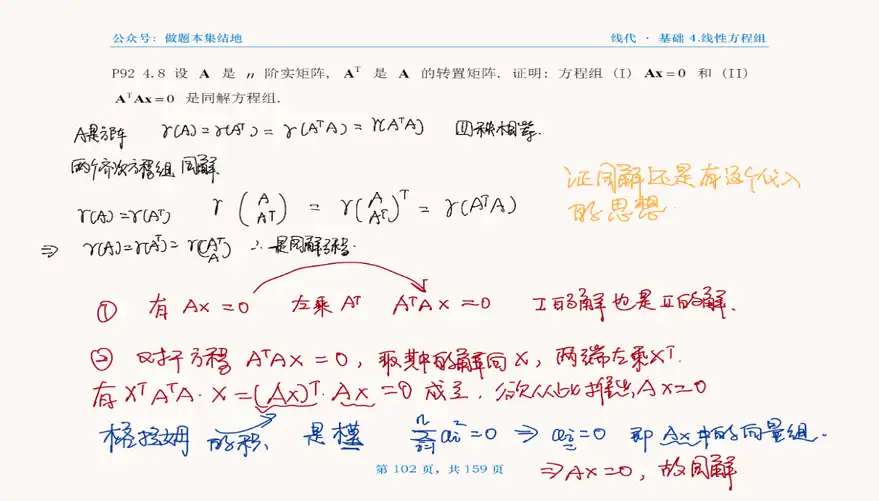 公众号: 做题本集结地
线代 · 基础 4.线性方程组
P92 4.8 设 A 是 n 阶实矩阵, Aᵀ 是 A 的转置矩阵. 证明: 方程组 (I) Ax=0 和 (II)
AᵀAx=0 是同解方程组.
A是方阵 r(A)=r(Aᵀ)=r(AᵀA)=r(AᵀA) 四秩相等.
两个齐次方程组 同解.
证同解还是有这个代入
的思想.
r(A)=r(Aᵀ) r(A Aᵀ)=r(A Aᵀ)ᵀ=r(AᵀA)
⇒ r(A)=r(Aᵀ)=r(Aᵀ A) ∴是同解方程.
① 有 Ax=0 左乘 Aᵀ AᵀAx=0 I的解也是II的解.
② 对于方程 AᵀAx=0, 取其中的解向 X, 两端左乘Xᵀ.
有 XᵀAᵀA·X=(Ax)ᵀ·Ax=0 成立, 欲从此推出Ax=0
格拉姆 的积, 是模 ai²=0 ⇒ ai=0 即 Ax中的向量组.
⇒Ax=0, 故同解
第 102 页, 共 159 页